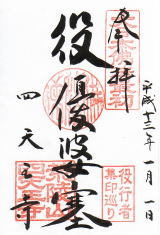 奉拝
平成十三年一月一日
役優婆塞
四天王寺
役行者
集印巡り